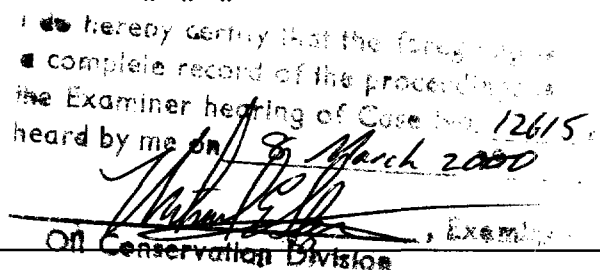 I do hereby certify that the foregoing is
a complete record of the proceedings in
the Examiner hearing of Case No. 12615,
heard by me on 8 March 2000
, Examiner
Oil Conservation Division